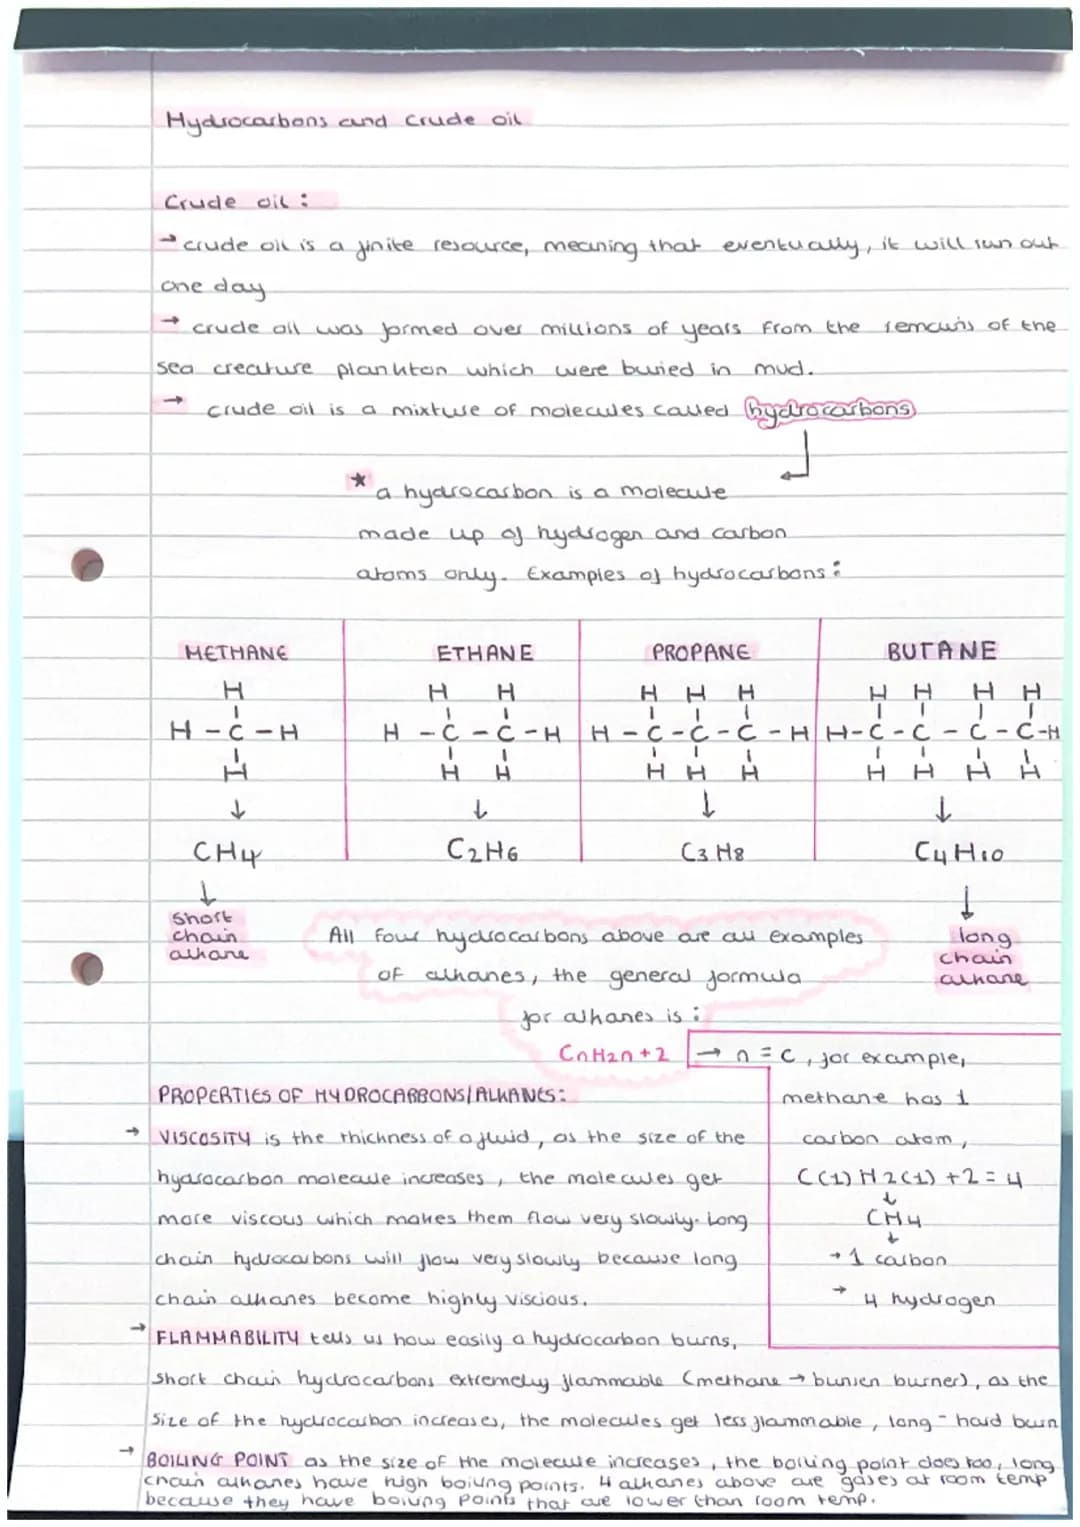 Hydrocarbons and crude oil
Crude oil :
→ crude oil is a finite resource, meaning that eventually, it will run out
one day
→ crude oil was formed over millions of years from the remains of the
sea creature plankton which were buried in mud.
→ crude oil is a mixture of molecules called hydrocarbons
* a hydrocarbon is a molecule
made up of hydrogen and carbon
atoms only. Examples of hydrocarbons :
METHANE ETHANE PROPANE BUTANE
H H H H H H H H H H
H - C - H H - C - C - H H - C - C - C - H H - C - C - C - C - H
H H H H H H H H H H
↓ ↓ ↓ ↓
CH4 C2H6 C3H8 C4H10
↓ ↓
short
chain
alkane
long
chain
alkane
All four hydrocarbons above are all examples
of alkanes, the general formula
for alkanes is :
CnH2n+2 → n = C, for example,
methane has 1
carbon atom,
C(1) H2(1) +2 = 4
↓
CH4
↓
→ 1 carbon
→ 4 hydrogen
PROPERTIES OF HYDROCARBONS/ALKANES:
→ VISCOSITY is the thickness of a fluid, as the size of the
hydrocarbon molecule increases, the molecules get
more viscous which makes them flow very slowly. Long
chain hydrocarbons will flow very slowly because long
chain alkanes become highly viscious.
→ FLAMMABILITY tells us how easily a hydrocarbon burns,
short chain hydrocarbons extremely flammable (methane → bunsen burner), as the
size of the hydrocarbon increases, the molecules get less flammable, long - hard burn
→ BOILING POINT as the size of the molecule increases, the boiling point does too, long
chain alkanes have high boiling points. 4 alkanes above are gases at room temp
because they have boiling points that are lower than room temp.